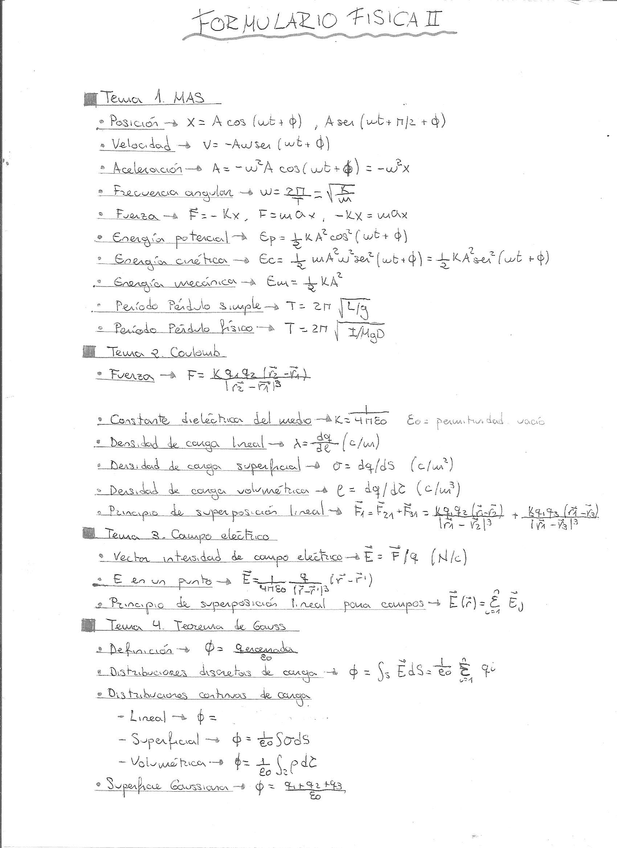 FORMULARIO FISICA II
Tema 1. MAS
• Posición → X = A cos (ωt + ϕ) , A sen (ωt + π/2 + ϕ)
• Velocidad → V = -Aω sen (ωt + ϕ)
• Aceleración → A = -ω²A cos (ωt + ϕ) = -ω²x
• Frecuencia angular → ω = 2π/T = √(K/m)
• Fuerza → F⃗ = -Kx, F = max, -Kx = max
• Energía potencial → Ep = 1/2 KA² cos² (ωt + ϕ)
• Energía cinética → Ec = 1/2 mA²ω² sen² (ωt + ϕ) = 1/2 KA² sen² (ωt + ϕ)
• Energía mecánica → Em = 1/2 KA²
• Período Péndulo simple → T = 2π √(L/g)
• Período Péndulo físico → T = 2π √(I/MgD)
Tema 2. Coulomb
• Fuerza → F = K q₁ q₂ (r⃗₂ - r⃗₁) / |r⃗₂ - r⃗₁|³
• Constante dieléctrica del medio → K = 1/4πε₀ ε₀ = permitividad vacío
• Densidad de carga lineal → λ = dq/dl (c/m)
• Densidad de carga superficial → σ = dq/dS (c/m²)
• Densidad de carga volumétrica → ρ = dq/dτ (c/m³)
• Principio de superposición lineal → F⃗₁ = F⃗₂₁ + F⃗₃₁ = K q₁ q₂ (r⃗₁ - r⃗₂) / |r⃗₁ - r⃗₂|³ + K q₁ q₃ (r⃗₁ - r⃗₃) / |r⃗₁ - r⃗₃|³
Tema 3. Campo eléctrico
• Vector intensidad de campo eléctrico → E⃗ = F⃗/q (N/c)
• E en un punto → E⃗ = 1/4πε₀ q/|r⃗ - r⃗'|³ (r⃗ - r⃗')
• Principio de superposición lineal para campos → E⃗(r⃗) = Σⁿᵢ₌₁ E⃗ⱼ
Tema 4. Teorema de Gauss
• Definición → ϕ = qencerrada/ε₀
• Distribuciones discretas de carga → ϕ = ∫s E⃗ dS = 1/ε₀ Σⁿᵢ₌₁ qi
• Distribuciones continuas de carga
- Lineal → ϕ =
- Superficial → ϕ = 1/ε₀ ∫σdS
- Volumétrica → ϕ = 1/ε₀ ∫ ρdτ
• Superficie Gaussiana → ϕ = q₁ + q₂ + q₃ / ε₀